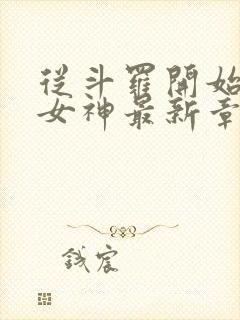 從斗羅開始
女神最新章
錢宸